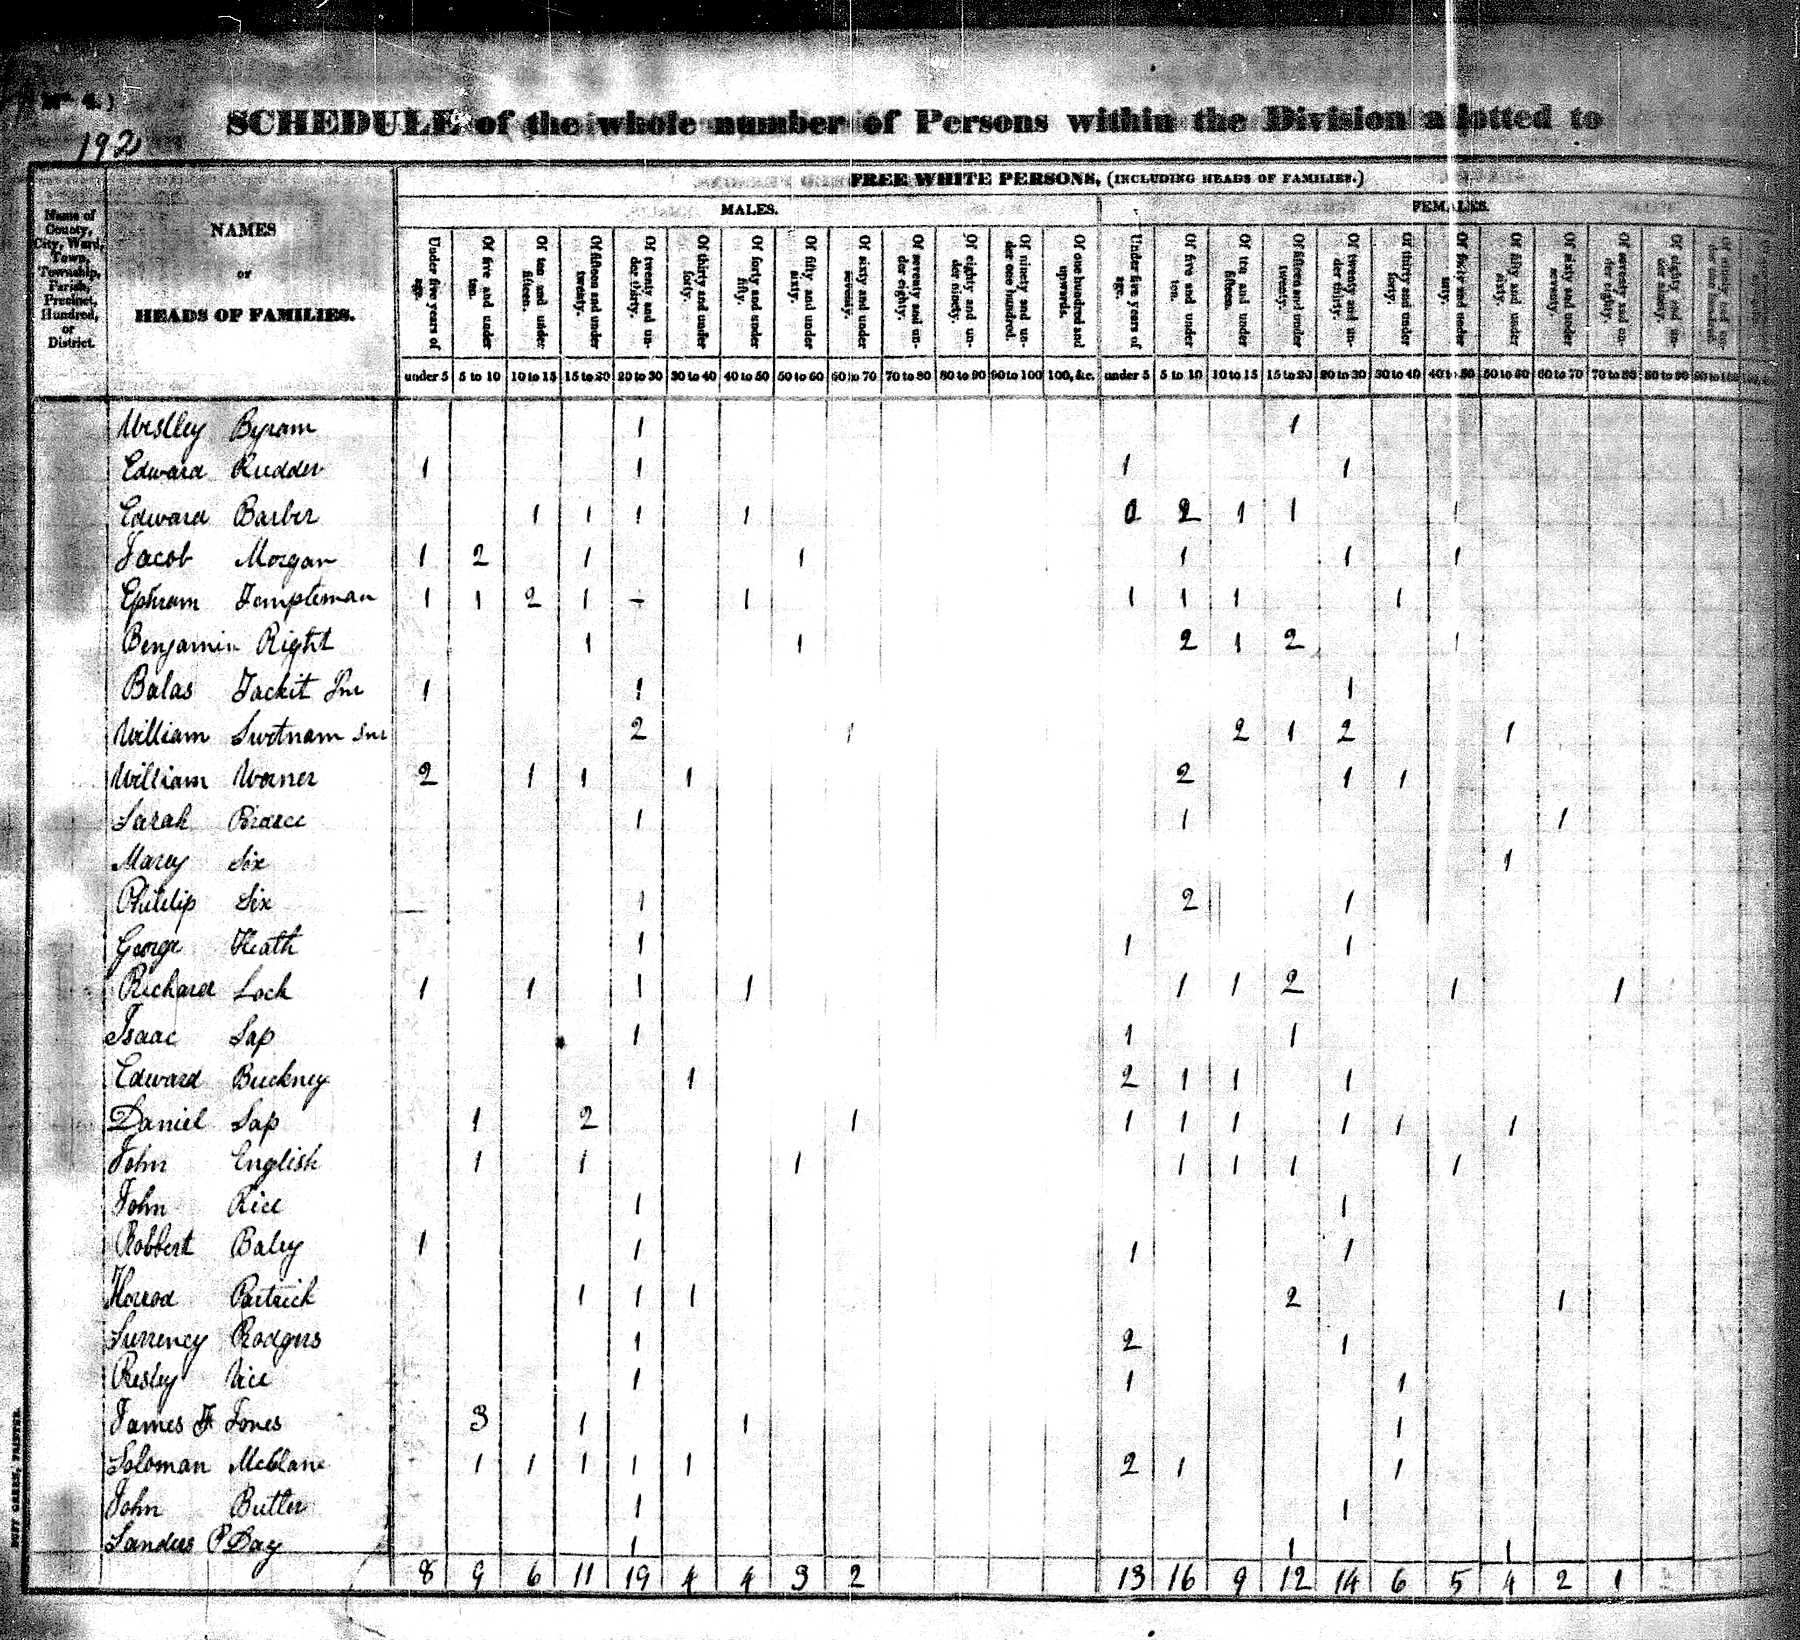 No. 4.)
192
SCHEDULE of the whole number of Persons within the Division allotted to
FREE WHITE PERSONS, (INCLUDING HEADS OF FAMILIES.)
MALES. FEMALES.
Name of County, City, Ward, Town, Township, Parish, Precinct, Hundred, or District.
NAMES
OF
HEADS OF FAMILIES.
Under five years of age. Of five and under ten. Of ten and under fifteen. Of fifteen and under twenty. Of twenty and under thirty. Of thirty and under forty. Of forty and under fifty. Of fifty and under sixty. Of sixty and under seventy. Of seventy and under eighty. Of eighty and under ninety. Of ninety and under one hundred. Of one hundred and upwards. Under five years of age. Of five and under ten. Of ten and under fifteen. Of fifteen and under twenty. Of twenty and under thirty. Of thirty and under forty. Of forty and under fifty. Of fifty and under sixty. Of sixty and under seventy. Of seventy and under eighty. Of eighty and under ninety. Of ninety and under one hundred.
under 5 5 to 10 10 to 15 15 to 20 20 to 30 30 to 40 40 to 50 50 to 60 60 to 70 70 to 80 80 to 90 90 to 100 100, &c. under 5 5 to 10 10 to 15 15 to 20 20 to 30 30 to 40 40 to 50 50 to 60 60 to 70 70 to 80 80 to 90 90 to 100
Westley Byram 1 1
Edward Rudder 1 1 1 1
Edward Barber 1 1 1 1 2 1 1 1
Jacob Morgan 1 2 1 1 1 1 1
Ephram Templeman 1 1 2 1 - 1 1 1 1 1
Benjamin Right 1 1 2 1 2 1
Balas Tackit Jnr 1 1 1
William Swetnam Snr 2 1 2 1 2 1
William Worner 2 1 1 1 2 1 1
Sarah Pearce 1 1 1
Marey Six 1
Philip Six 1 2 1
George Heath 1 1 1
Richard Lock 1 1 1 1 1 1 2 1 1
Isaac Sap 1 1 1
Edward Buckney 1 2 1 1 1
Daniel Sap 1 2 1 1 1 1 1 1 1
John English 1 1 1 1 1 1 1
John Rice 1 1
Robbert Baley 1 1 1 1
Horrod Partrick 1 1 1 2 1
Surrency Rodgers 1 2 1
Presley Vice 1 1 1
James F Jones 3 1 1 1
Soloman McClane 1 1 1 1 1 2 1 1
John Butler 1 1
Sandus P Day 1 1 1
8 9 6 11 19 4 4 3 2 13 16 9 12 14 6 5 4 2 1
DUFF GREEN, PRINTER.